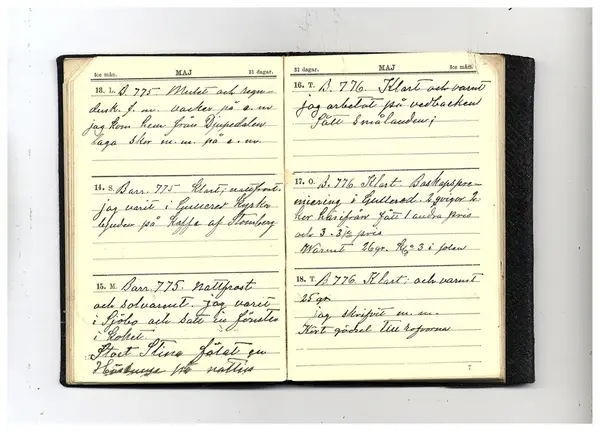 5:e mån. MAJ 31 dagar.
13. L. B. 775 Mulet och regn-
dusk f. m. vacker på e. m
jag kom hem från Djupedalen
laga skor m. m. på e. m.
14. S. Barr. 775 Klart; nattfrost.
jag varit i Gullered
bjuden på kaffe af Stomberg
15. M. Barr. 775. Nattfrost
och solvarmt. jag varit
i Sjöbo och satt in fönster
i
Stort Stina fölat en
på natten
31 dagar. MAJ 5:e mån.
16. T. B. 776. Klart och varmt
jag arbetat på vedbacken
Fått Smålanden;
17. O. B. 776 Klart. Boskapspre-
miering i Gullered. 2 qvigor 2
kor härifrån fått 1 andra pris
och 3 - 3je pris
Varmt 26gr. Kl 3 i solen
18. T. B 776 Klart; och varmt
25 gr
jag skrifvit m. m.
Kört gödsel till rofvorna
7